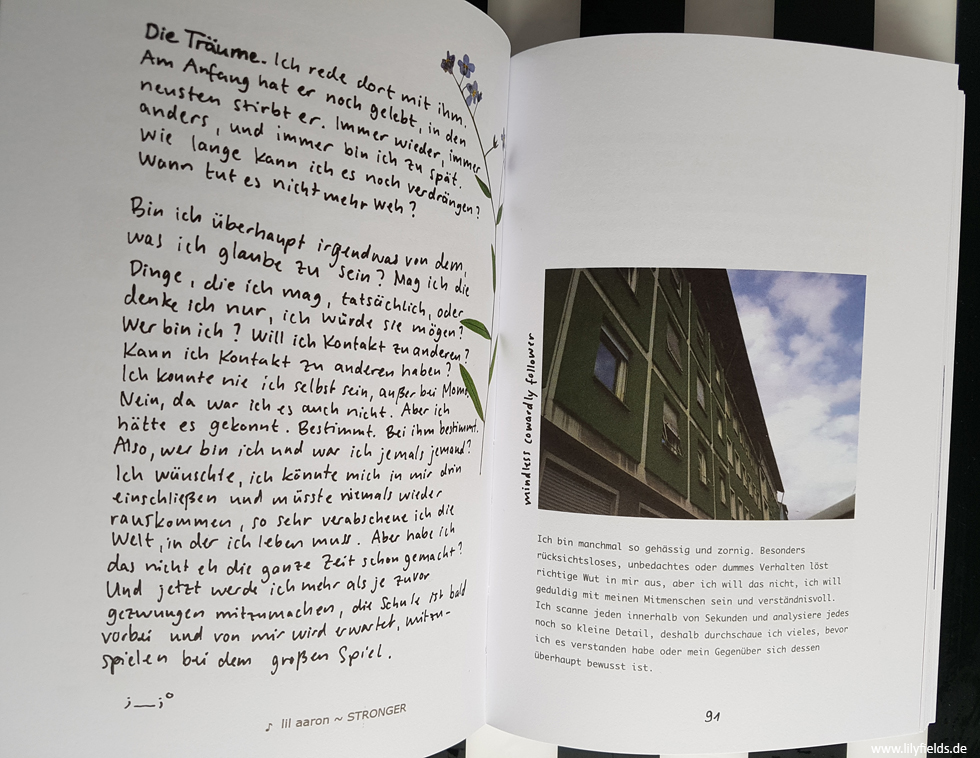 Die Träume. Ich rede dort mit ihm.
Am Anfang hat er noch gelebt, in den
neusten stirbt er. Immer wieder, immer
anders, und immer bin ich zu spät.
Wie lange kann ich es noch verdrängen?
Wann tut es nicht mehr weh?
Bin ich überhaupt irgendwas von dem,
was ich glaube zu sein? Mag ich die
Dinge, die ich mag, tatsächlich, oder
denke ich nur, ich würde sie mögen?
Wer bin ich? Will ich Kontakt zu anderen?
Kann ich Kontakt zu anderen haben?
Ich konnte nie ich selbst sein, außer bei Mom.
Nein, da war ich es auch nicht. Aber ich
hätte es gekonnt. Bestimmt. Bei ihm bestimmt.
Also, wer bin ich und war ich jemals jemand?
Ich wünschte, ich könnte mich in mir drin
einschließen und müsste niemals wieder
rauskommen, so sehr verabscheue ich die
Welt, in der ich leben muss. Aber habe ich
das nicht eh die ganze Zeit schon gemacht?
Und jetzt werde ich mehr als je zuvor
gezwungen mitzumachen, die Schule ist bald
vorbei und von mir wird erwartet, mitzu-
spielen bei dem großen Spiel.
;__;°
♪ lil aaron ~ STRONGER
mindless cowardly follower
Ich bin manchmal so gehässig und zornig. Besonders
rücksichtsloses, unbedachtes oder dummes Verhalten löst
richtige Wut in mir aus, aber ich will das nicht, ich will
geduldig mit meinen Mitmenschen sein und verständnisvoll.
Ich scanne jeden innerhalb von Sekunden und analysiere jedes
noch so kleine Detail, deshalb durchschaue ich vieles, bevor
ich es verstanden habe oder mein Gegenüber sich dessen
überhaupt bewusst ist.
91
www.lilyfields.de